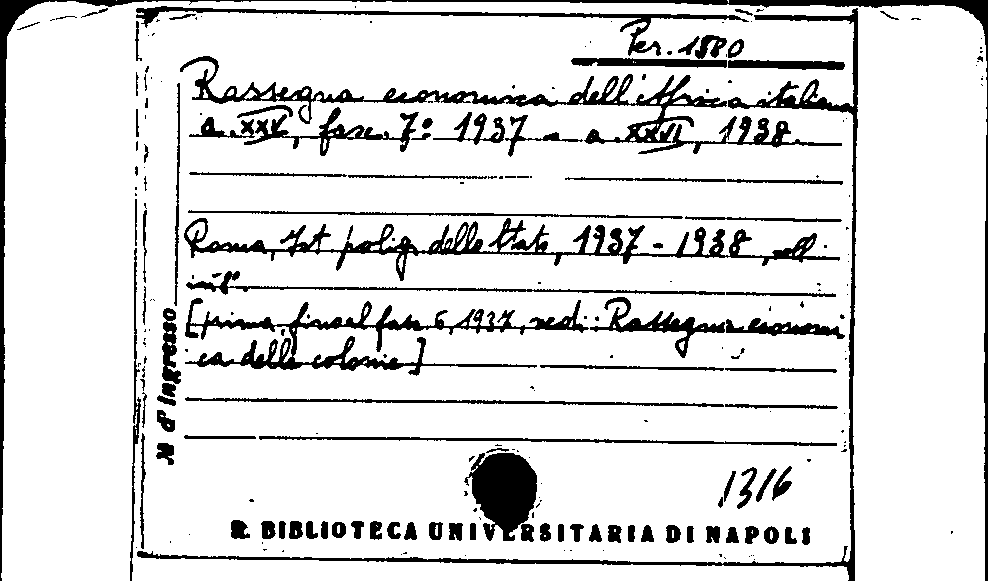 Per. 1580
Rassegna economica dell'Africa italiana
a. XXV, fasc. 7º 1937 - a. XXVI, 1938.
Roma, Ist. polig. dello Stato, 1937 - 1938, voll.
in 8º.
[prima, fino al fasc. 6, 1937, vedi: Rassegna economi
ca delle colonie]
N d' ingresso
1316
R. BIBLIOTECA UNIVERSITARIA DI NAPOLI